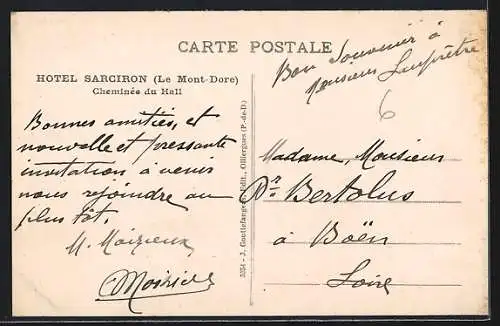 CARTE POSTALE
Bon Souvenir à
Monsieur
HOTEL SARCIRON (Le Mont-Dore)
Cheminée du Hall
6
Bonnes amitiés, et
nouvelle et pressante
invitation à venir
nous rejoindre au
plus tôt.
M.
Madame, Monsieur
Dr Bertolus
à Boën
Loire
Édit., Olliergues (P.-de-D.)